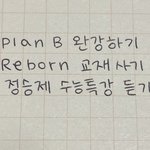 plan B 완강하기
Reborn 교재 사기
정승제 수능특강 듣기